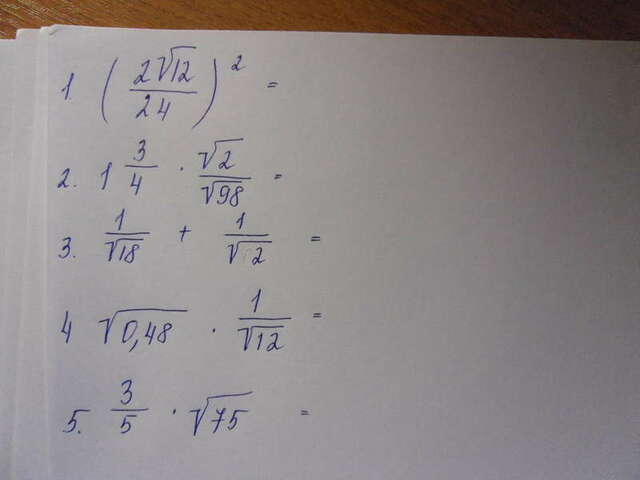 1. (2√12/24)² =
2. 1 3/4 · √2/√98 =
3. 1/√18 + 1/√2 =
4 √0,48 · 1/√12 =
5. 3/5 · √75 =